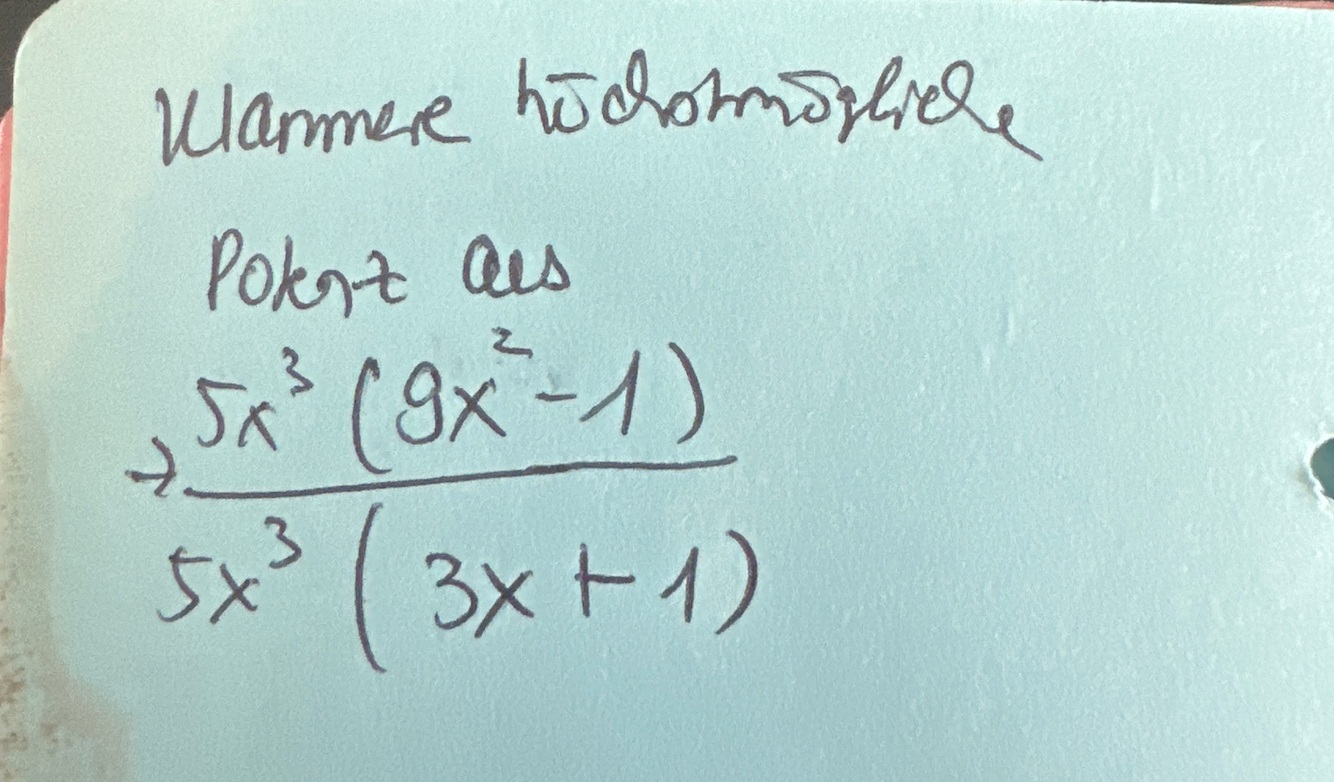 Klammere höchstmögliche
Potenz aus
→ 5x³ (9x² - 1)
5x³ (3x + 1)